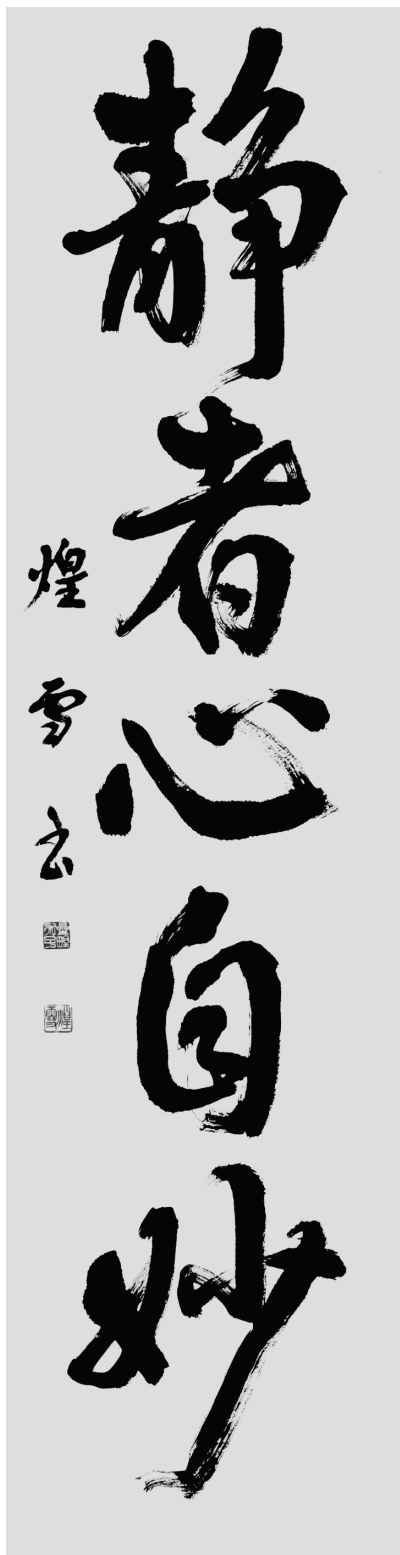 静者心自妙
煌雪书